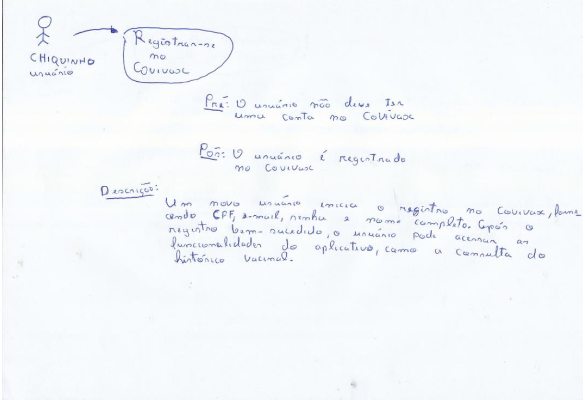 CHIQUINHO
usuário
Registrar-se
no
Covivax
Pré: O usuário não deve ter
uma conta no Covivax
Pós: O usuário é registrado
no Covivax
Descrição:
Um novo usuário inicia o registro no Covivax, forne
cendo CPF, e-mail, senha e nome completo. Após o
registro bem-sucedido, o usuário pode acessar as
funcionalidades do aplicativo, como a consulta do
histórico vacinal.